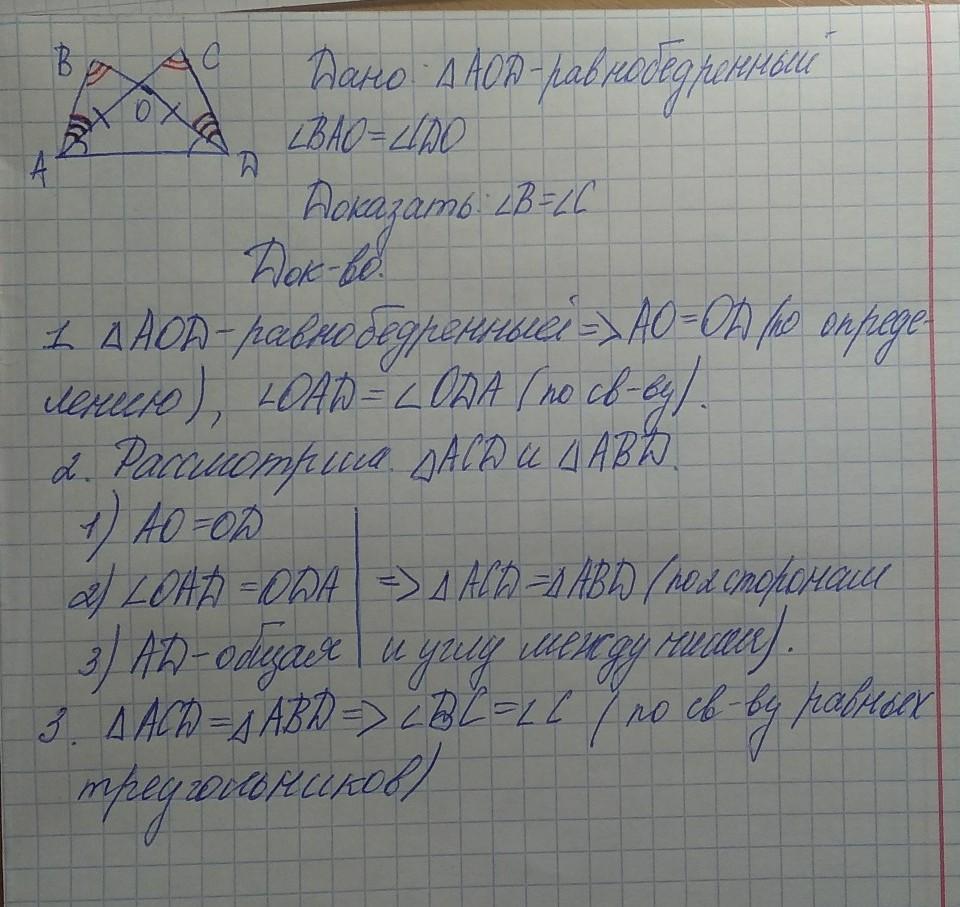 B C
O
A D
Дано: △AOD-равнобедренный
∠BAO=∠CDO
Доказать: ∠B=∠C
Док-во.
1. △AOD-равнобедренный => AO=OD (по опреде-
лению), ∠OAD=∠ODA (по св-ву).
2. Рассмотрим △ACD и △ABD.
1) AO=OD
2) ∠OAD=ODA => △ACD=△ABD (по 2 сторонам
3) AD-общая и углу между ними).
3. △ACD=△ABD => ∠BC=∠C (по св-ву равных
треугольников)